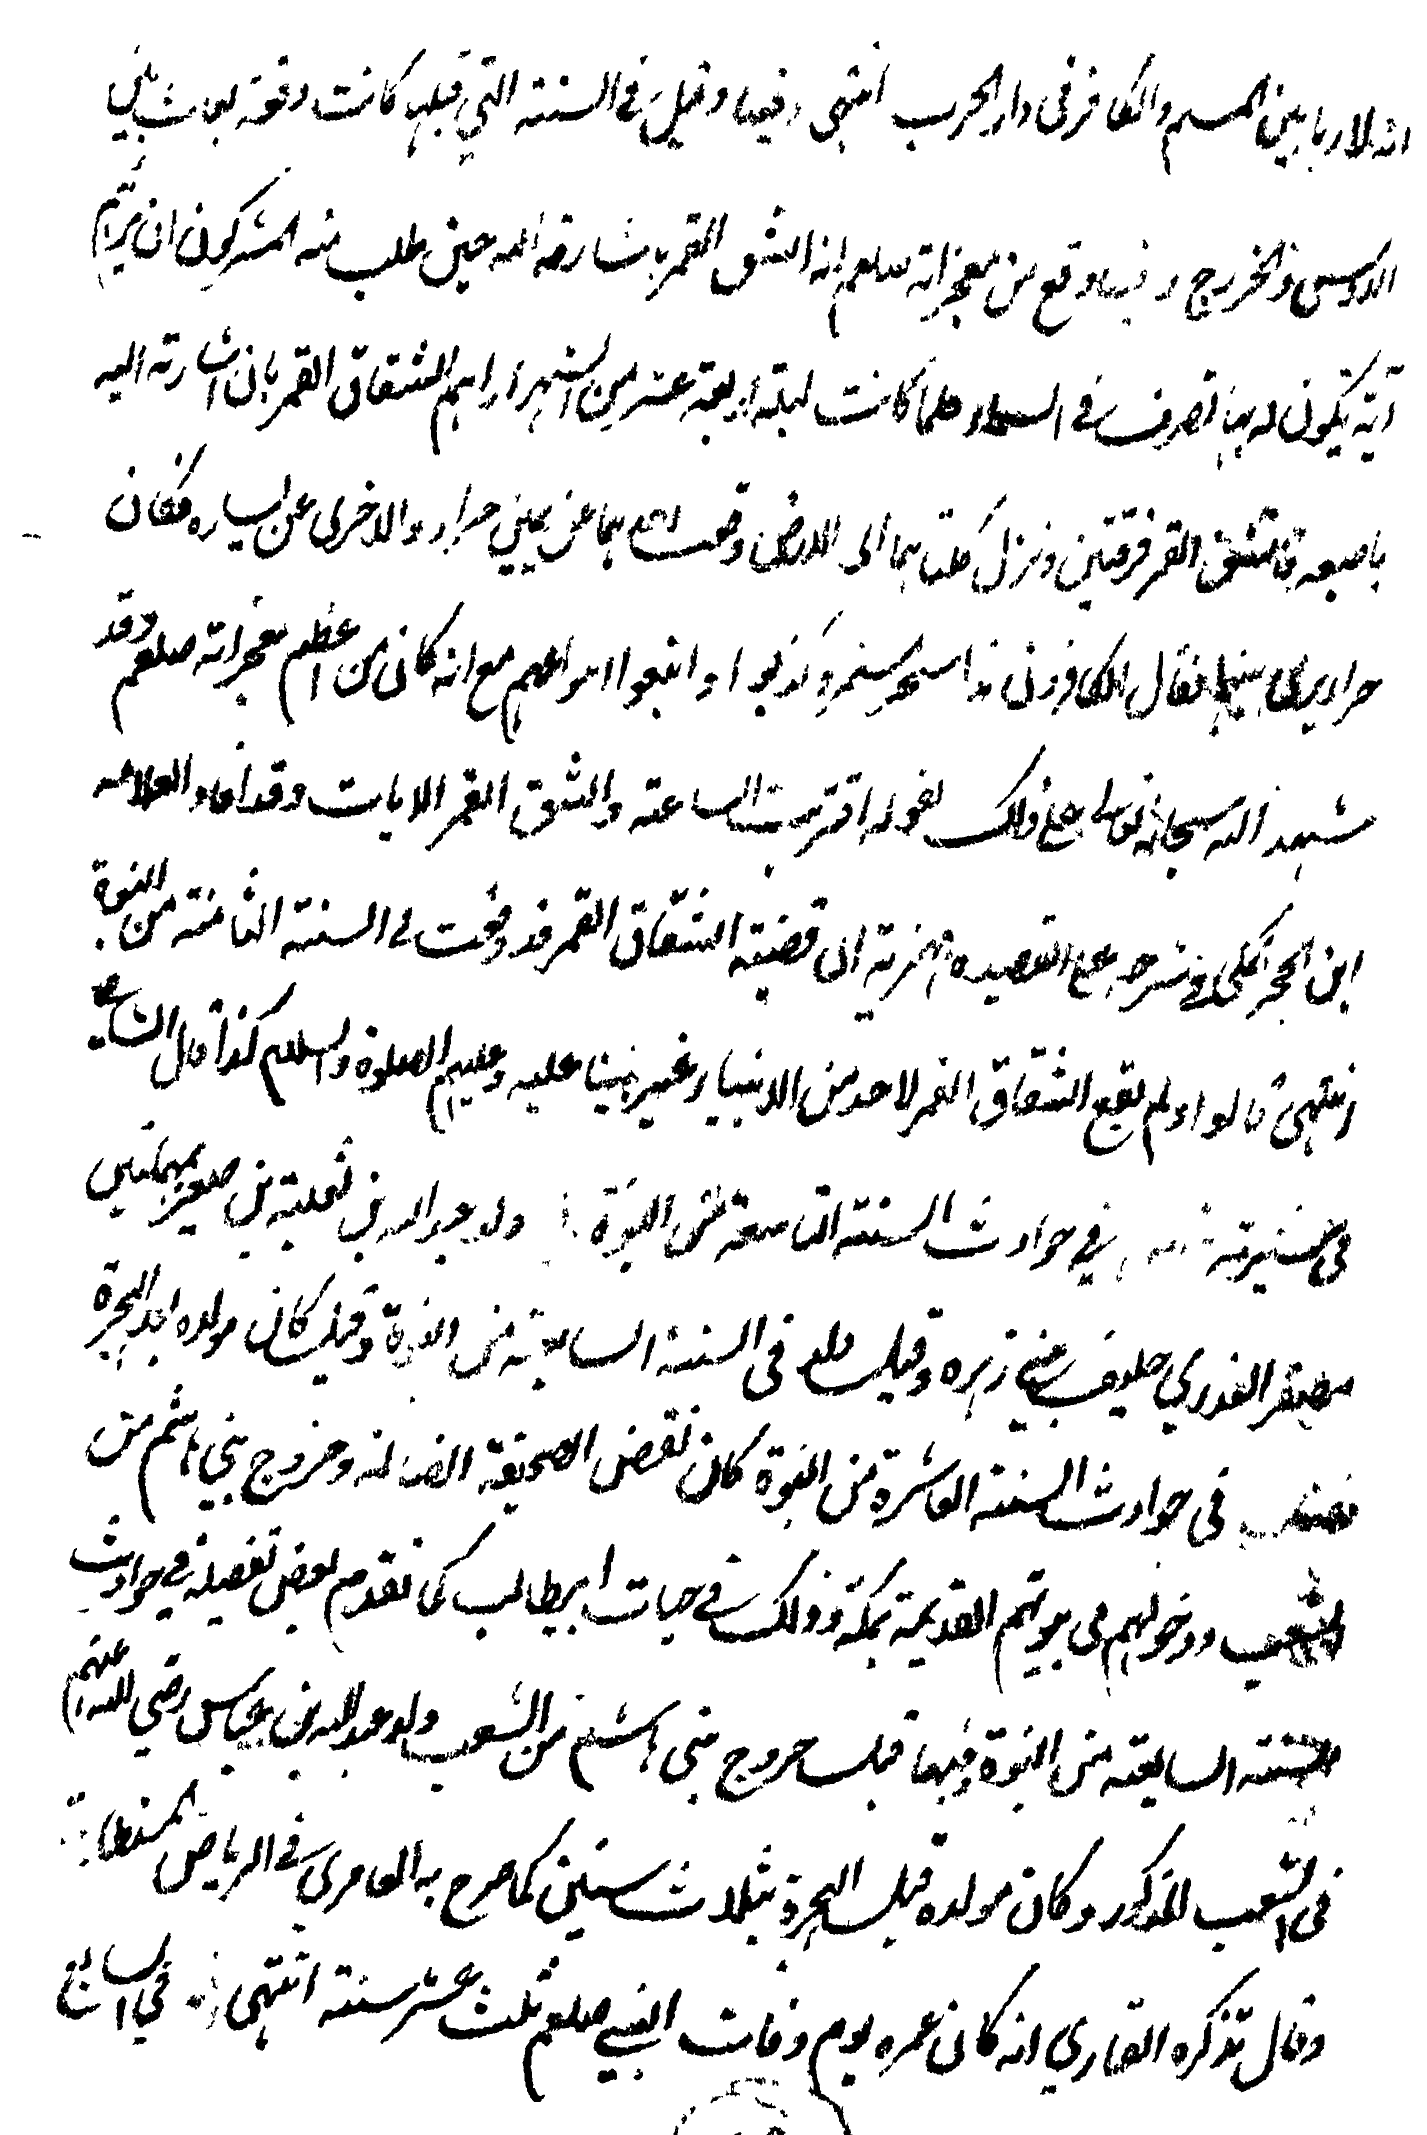 انه لا ربا بين المسلم والكافر فى دار الحرب انتهى وفيها وقيل فى السنة التي قبلها كانت وقعة بعاث بين
الاوس والخزرج وفيها وقع من معجزاته صلعم انه انشق القمر باشارته اليه حين طلب منه المشركون ان يريهم
آية يكون له بها تصرف فى السماء فلما كانت ليلة اربعة عشر من الشهر اراهم انشقاق القمر بان اشارته اليه
باصبعه فانشق القمر فرقتين ونزل كلتاهما الى الارض وقعت احدهما عن يمين حراء والاخرى عن يساره فكان
حراء يرى بينهما فقال الكافرون هذا سحر مستمر وكذبوا واتبعوا اهواءهم مع انه كان من اعظم معجزاته صلعم وقد
شهد الله سبحانه تعالى على ذلك لقوله اقتربت الساعة وانشق القمر الايات وقد افاد العلامه
ابن الحجر المكى فى شرحه على القصيده الهمزية الى قضية انشقاق القمر قد وقعت فى السنة الثامنة من النبوة
انتهى قالوا ولم يقع انشقاق القمر لاحد من الانبياء غير نبينا عليه وعليهم الصلوة والسلام كذا قال الشامى
فى سيرته فى حوادث السنة التاسعة من النبوة ولد عبد الله بن ثعلبة بن صعير بمهملتين
مصغر العذري حليف بنى زهره وقيل ولد فى السنة السابعة من النبوة وقيل كان مولده بعد الهجرة
فصل فى حوادث السنة العاشرة من النبوة كان نقض الصحيفة الضالة وخروج بني هاشم من
الشعب ودخولهم فى بيوتهم القديمة بمكة وذلك فى حيات ابيطالب كما تقدم بعض تفصيله فى حوادث
السنة السابعة من النبوة وفيها قبل خروج بنى هاشم من الشعب ولد عبد الله بن عباس رضي الله عنهم
فى الشعب المذكور وكان مولده قبل الهجرة بثلاث سنين كما صرح به العامري فى الرياض المستطابة
وقال تذكره القاري انه كان عمره يوم وفات النبي صلعم ثلث عشر سنة انتهى في السابع